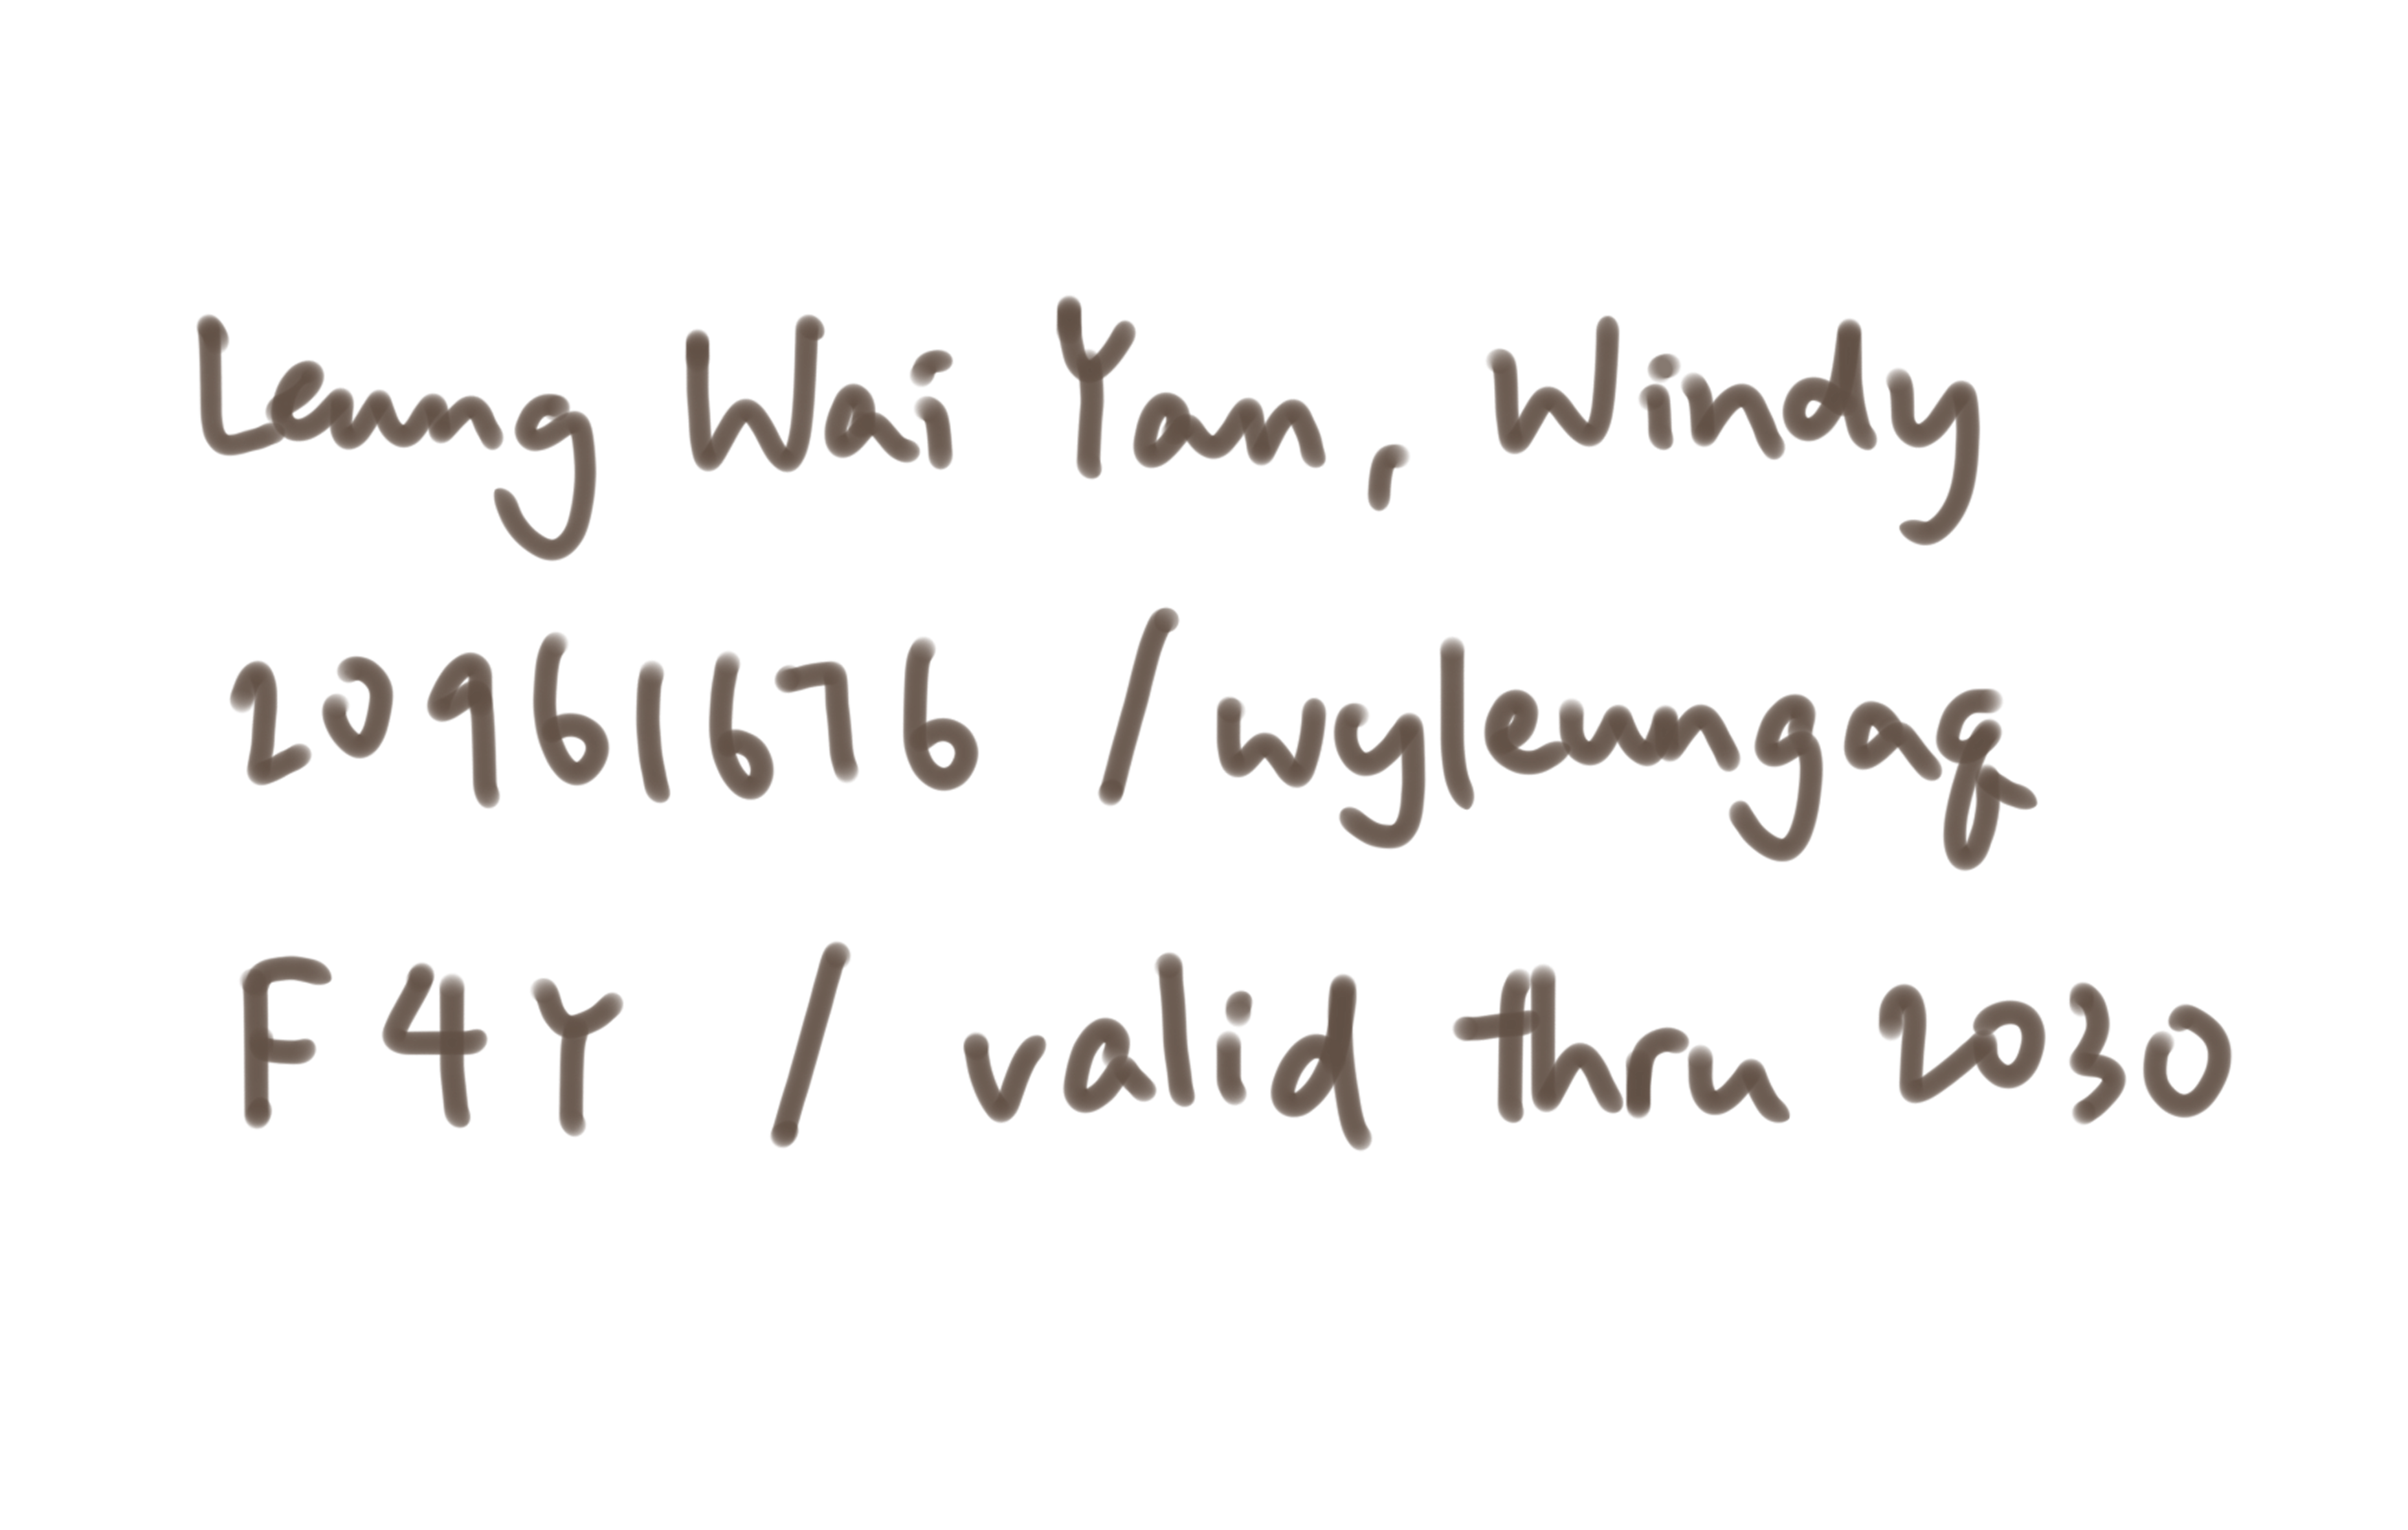 Leung Wai Yan, Windy
20961676 / wyleungaq
F4Y / valid thru 2030